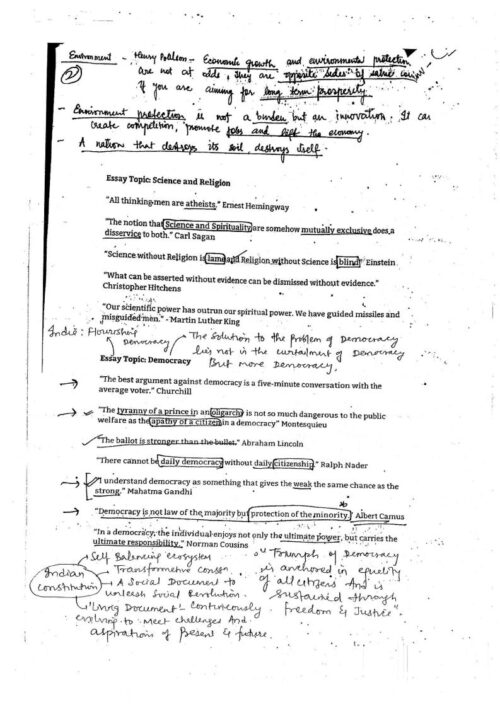 Environment - Henry Paulson - Economic growth and environmental protection
are not at odds, they are opposite sides of same coin -
②
If you are aiming for long term prosperity
- Environment protection is not a burden but an innovation. It can
create competition, promote jobs and lift the economy.
- A nation that destroys its soil, destroys itself.
Essay Topic: Science and Religion
"All thinking men are atheists." Ernest Hemingway
"The notion that Science and Spirituality are somehow mutually exclusive does a
disservice to both." Carl Sagan
"Science without Religion is lame and Religion without Science is blind" Einstein
"What can be asserted without evidence can be dismissed without evidence."
Christopher Hitchens
"Our scientific power has outrun our spiritual power. We have guided missiles and
misguided men." - Martin Luther King
India: Flourishing
Democracy
The solution to the problem of Democracy
lies not in the curtailment of Democracy
But more Democracy.
Essay Topic: Democracy
"The best argument against democracy is a five-minute conversation with the
average voter." Churchill
"The tyranny of a prince in an oligarchy is not so much dangerous to the public
welfare as the apathy of a citizen in a democracy" Montesquieu
"The ballot is stronger than the bullet." Abraham Lincoln
"There cannot be daily democracy without daily citizenship." Ralph Nader
"I understand democracy as something that gives the weak the same chance as the
strong." Mahatma Gandhi
"Democracy is not law of the majority but protection of the minority." Albert Camus
"In a democracy, the individual enjoys not only the ultimate power, but carries the
ultimate responsibility." Norman Cousins
Indian
constitution
Self Balancing ecosystem
Transformative Constn
A Social Document to
unleash Social Revolution.
'Living Document' - Continuously
evolving to meet challenges And
aspirations of Present & future.
"Triumph of Democracy
is anchored in equality
of all citizens And is
sustained through
freedom & Justice".